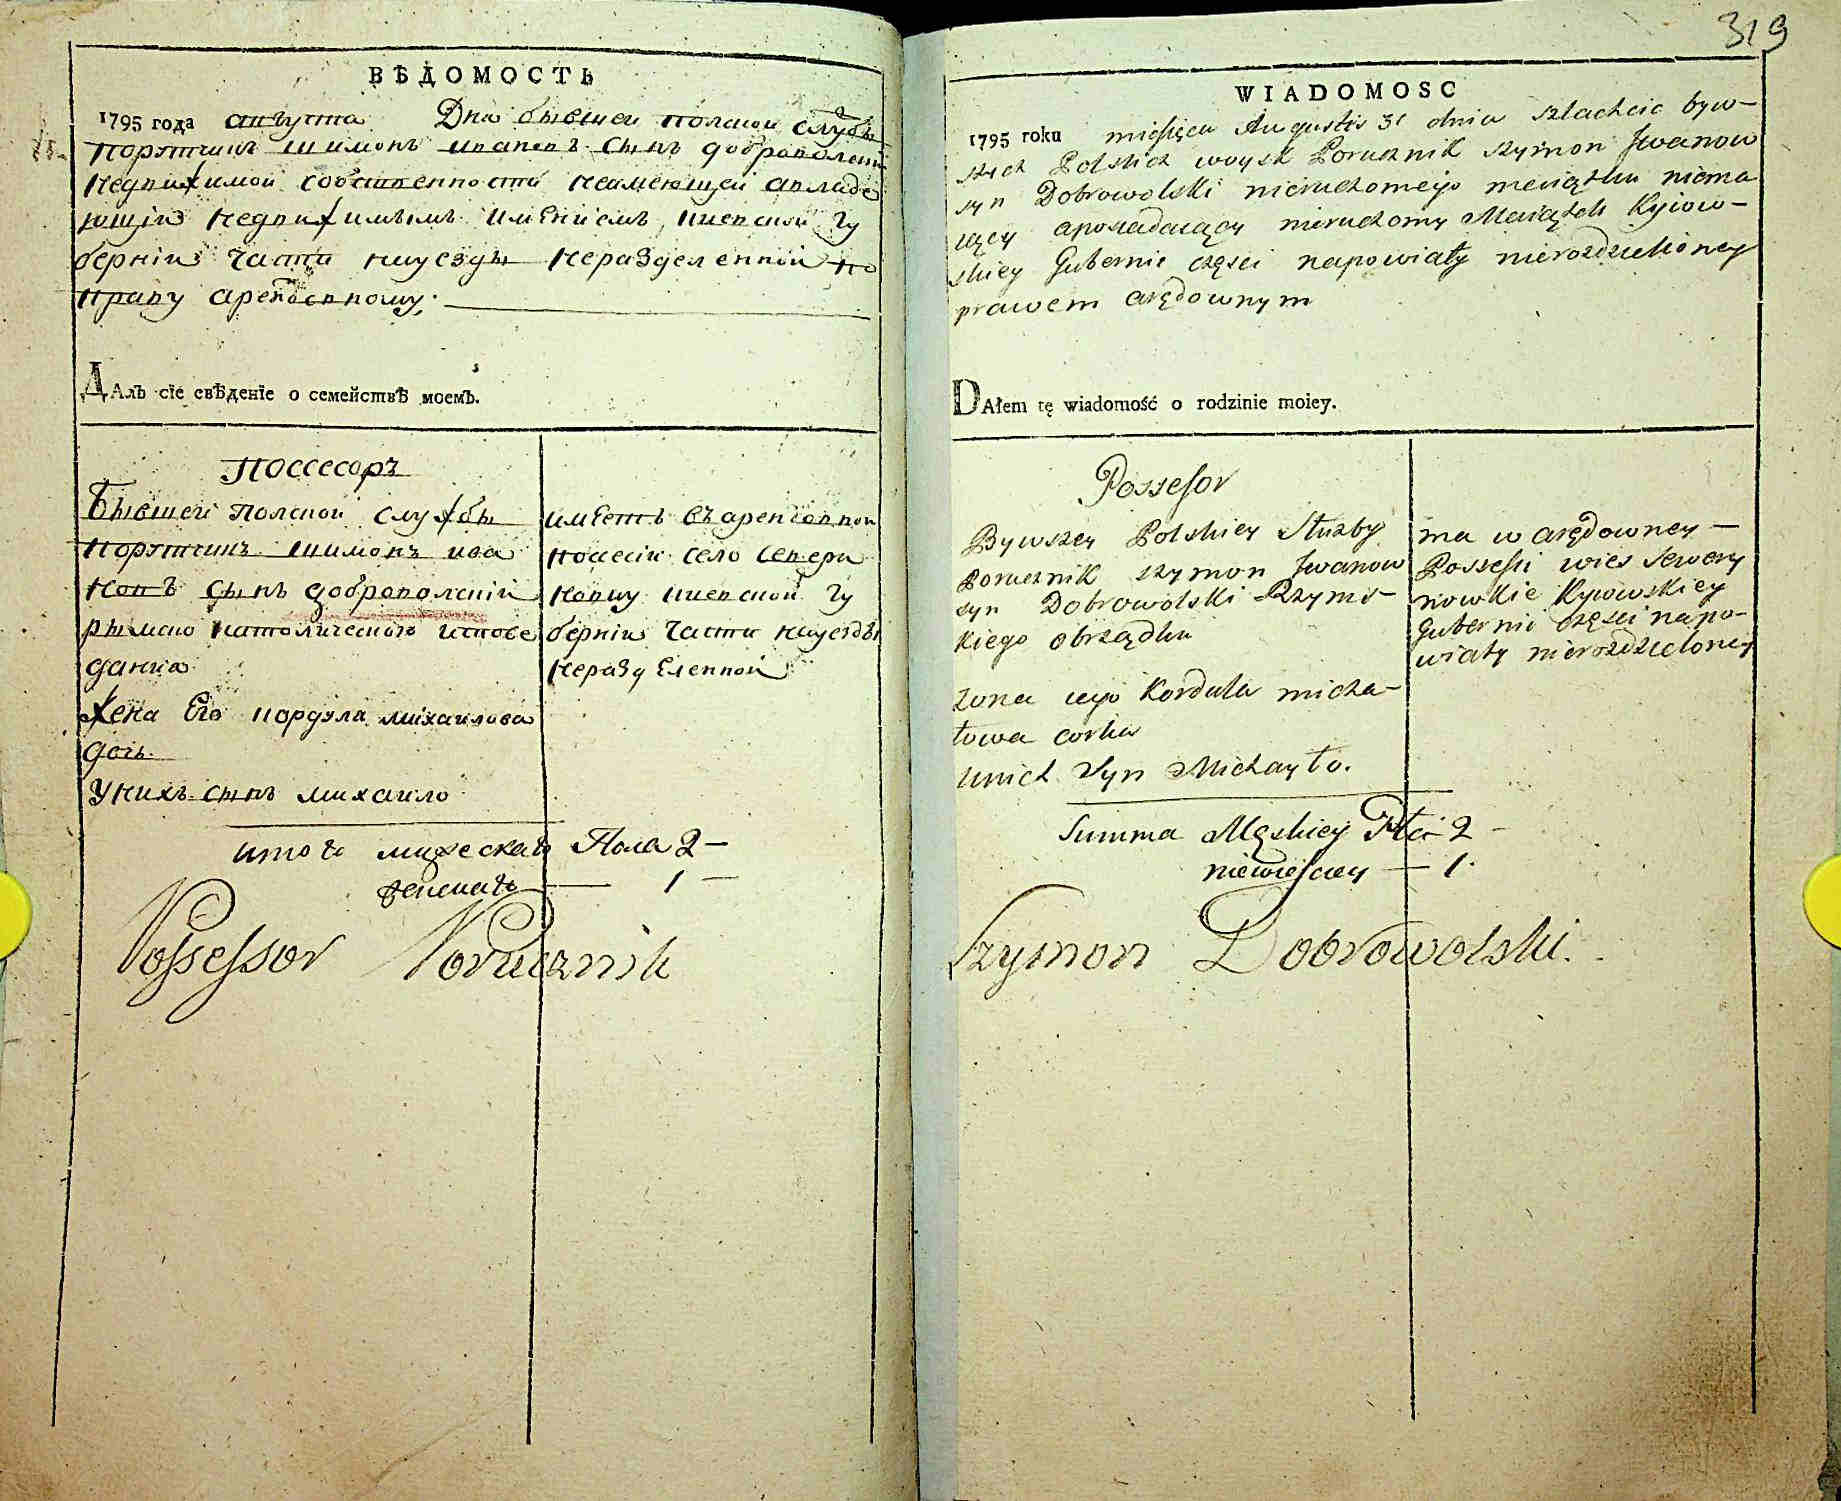 ВѢДОМОСТЬ
1795 года августа Дня бывшей полской службы
порутчикъ шимонъ ивановъ сынъ доброволский
недвижимой собственности неимеющей авладе
ющій недвижимымъ имѣніемъ киевской гу
берніи части науезды неразделенной по
праву арендовному:
Далъ сїе свѣденїе о семействѣ моемъ.
Поссесоръ
Бывшей полской службы
порутчикъ шимонъ ива
новъ сынъ доброволскій
рымско католическаго испове
дания
жена его кордула михайлова
дочь
у нихъ сынъ михайло
имѣетъ въ арендовной
посесіи село севери
новку киевской гу
берніи части науезды
неразделенной
итого мужеска Пола 2 —
женска — 1 —
Possessor Porucznik
319
WIADOMOSC
1795 roku miesięca Augusta 31 dnia szlachcic byw-
szych Polskich woysk Porucznik szymon Jwanow
syn Dobrowolski nieruchomego maiątku niema
iący aposiadaiący nieruchomy Maiątek Kyiow-
skiey Gubernie części napowiaty nierozdzieloney
prawem arędownym
DAłem tę wiadomość o rodzinie moiey.
Possessor
Bywszey Polskiey Służby
Porucznik szymon Jwanow
syn Dobrowolski Rzyms-
kiego obrządku
żona iego Kordula micha-
łowa corka
unich Syn Michayło.
ma w arędowney —
Possessi wies Sewery
nowkie Kyiowskiey
Guberni części napo-
wiaty nierozdzieloney
Summa Męskiey Płci 2 —
niewiesciey — 1.
Szymon Dobrowolski.